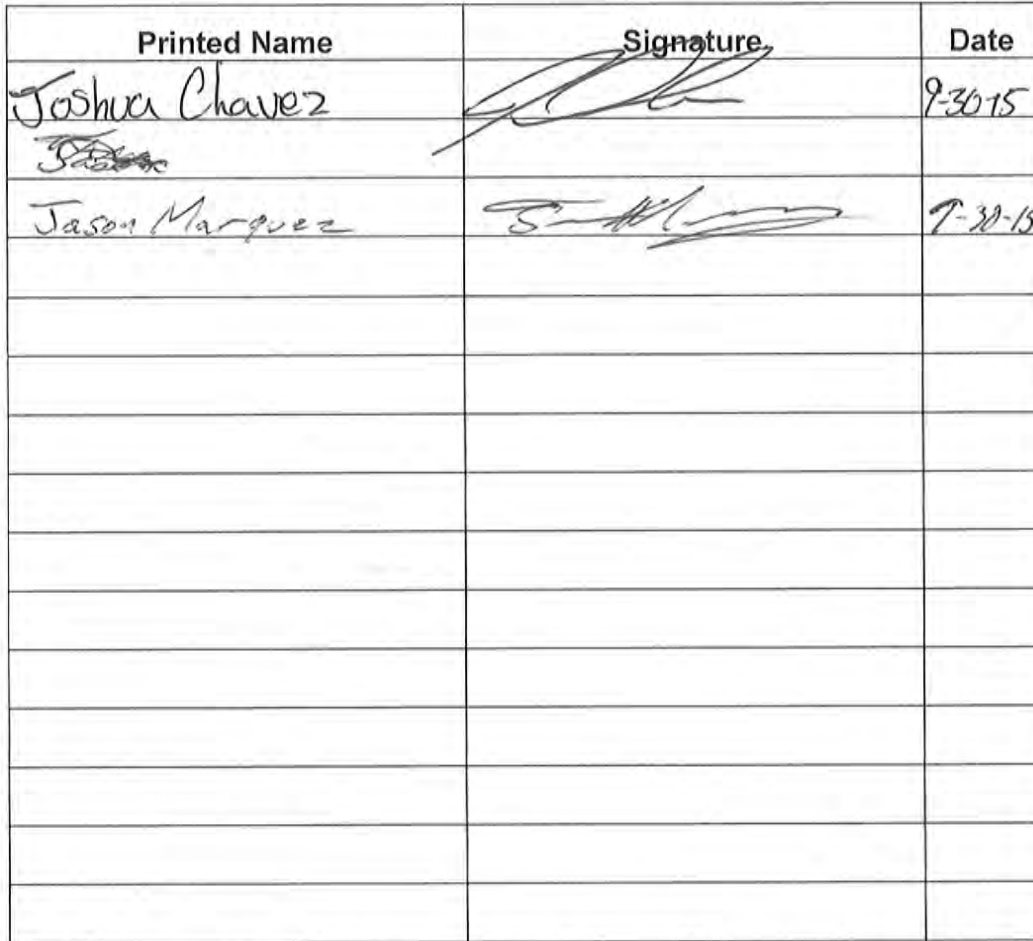 Printed Name Signature Date
Joshua Chavez 9-30-15
Jason Marquez 9-30-15